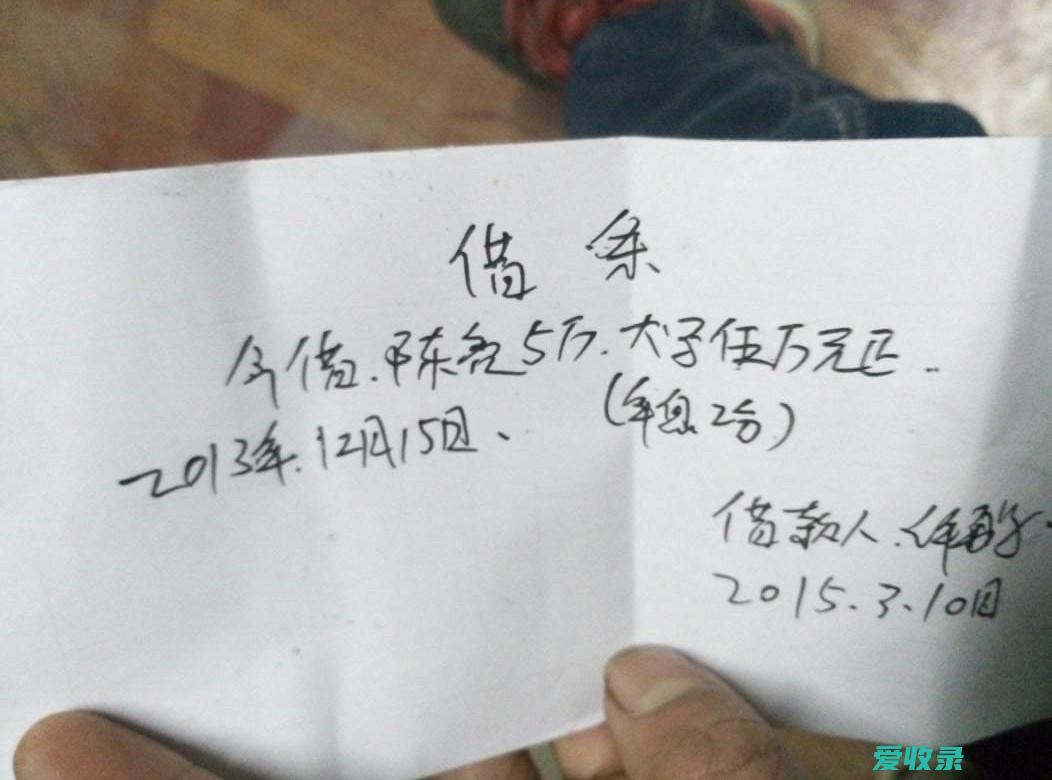 借条
今借.陈亮5万.大写伍万元正..
2013年.12月15日、(年息2分)
借款人.
2015.3.10日
爱收录